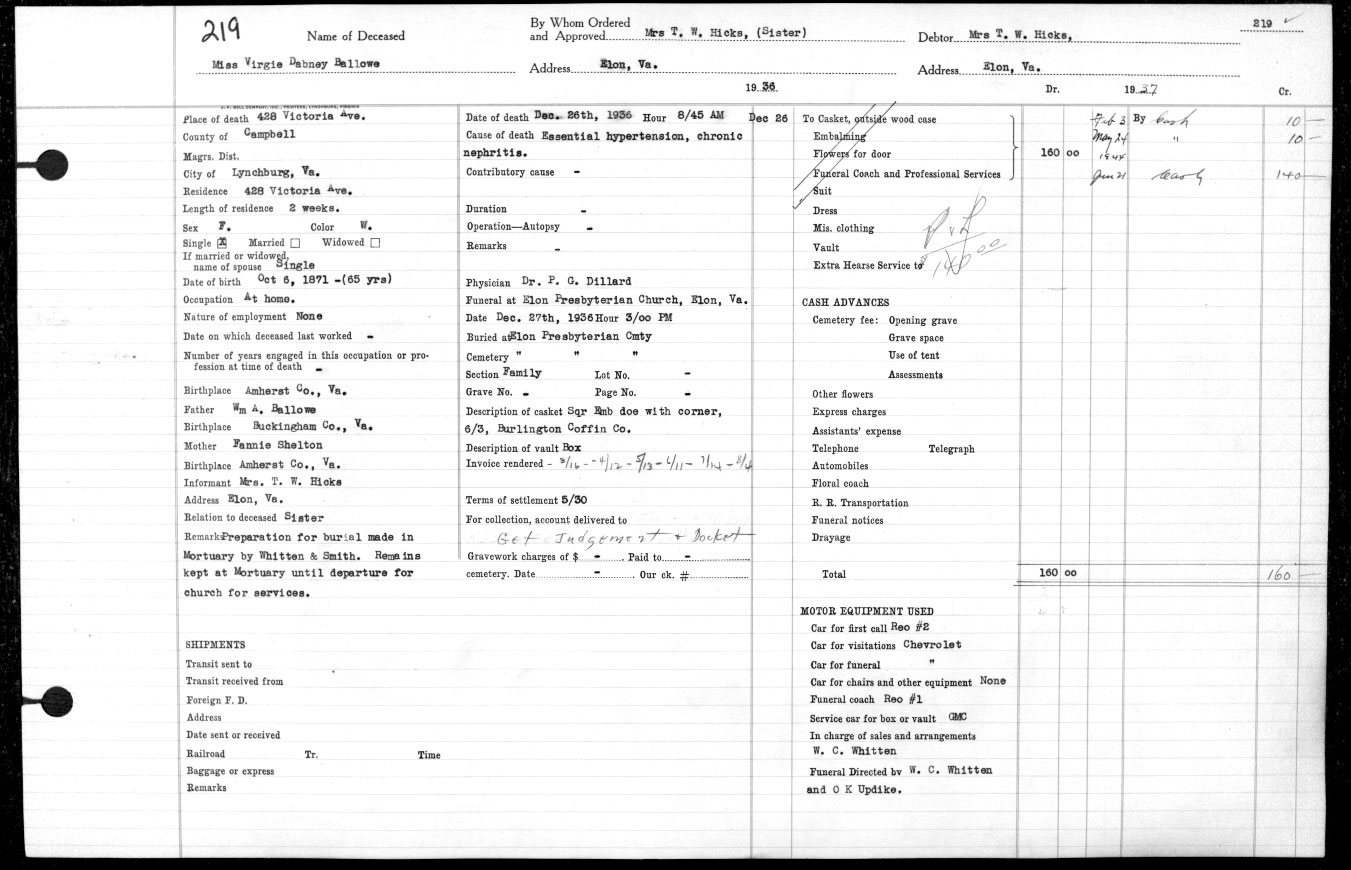 219
Name of Deceased
Miss Virgie Dabney Ballowe
By Whom Ordered
and Approved Mrs T. W. Hicks, (Sister)
Address Elon, Va.
Debtor Mrs T. W. Hicks,
Address Elon, Va.
219 ✓
1936
Dr.
1937
Cr.
J. P. BELL COMPANY, INC., PRINTERS, LYNCHBURG, VIRGINIA
Place of death 428 Victoria Ave.
County of Campbell
Magrs. Dist.
City of Lynchburg, Va.
Residence 428 Victoria Ave.
Length of residence 2 weeks.
Sex F. Color W.
Single ☒ Married ☐ Widowed ☐
If married or widowed,
name of spouse Single
Date of birth Oct 6, 1871 -(65 yrs)
Occupation At home.
Nature of employment None
Date on which deceased last worked -
Number of years engaged in this occupation or pro-
fession at time of death -
Birthplace Amherst Co., Va.
Father Wm A. Ballowe
Birthplace Buckingham Co., Va.
Mother Fannie Shelton
Birthplace Amherst Co., Va.
Informant Mrs. T. W. Hicks
Address Elon, Va.
Relation to deceased Sister
Remarks Preparation for burial made in
Mortuary by Whitten & Smith. Remains
kept at Mortuary until departure for
church for services.
SHIPMENTS
Transit sent to
Transit received from
Foreign F. D.
Address
Date sent or received
Railroad Tr. Time
Baggage or express
Remarks
Date of death Dec. 26th, 1936 Hour 8/45 AM
Cause of death Essential hypertension, chronic
nephritis.
Contributory cause -
Duration -
Operation—Autopsy -
Remarks -
Physician Dr. P. G. Dillard
Funeral at Elon Presbyterian Church, Elon, Va.
Date Dec. 27th, 1936 Hour 3/oo PM
Buried at Elon Presbyterian Cmty
Cemetery " " "
Section Family Lot No. -
Grave No. - Page No. -
Description of casket Sqr Emb doe with corner,
6/3, Burlington Coffin Co.
Description of vault Box
Invoice rendered - 3/16 - 4/12 - 5/13 - 6/11 - 7/14 - 8/4
Terms of settlement 5/30
For collection, account delivered to
Get Judgement + Docket
Gravework charges of $ - . Paid to -
cemetery. Date - . Our ck. #
Dec 26
To Casket, outside wood case
Embalming
Flowers for door
160 00
Funeral Coach and Professional Services
Suit
Dress
Mis. clothing
Vault
Extra Hearse Service to
$140 00
CASH ADVANCES
Cemetery fee: Opening grave
Grave space
Use of tent
Assessments
Other flowers
Express charges
Assistants' expense
Telephone Telegraph
Automobiles
Floral coach
R. R. Transportation
Funeral notices
Drayage
Total 160 00 160 —
MOTOR EQUIPMENT USED
Car for first call Reo #2
Car for visitations Chevrolet
Car for funeral "
Car for chairs and other equipment None
Funeral coach Reo #1
Service car for box or vault GMC
In charge of sales and arrangements
W. C. Whitten
Funeral Directed by W. C. Whitten
and O K Updike.
Feb 3 By Cash 10 —
May 24 " 10 —
1944
Jan 21 Cash 140 —